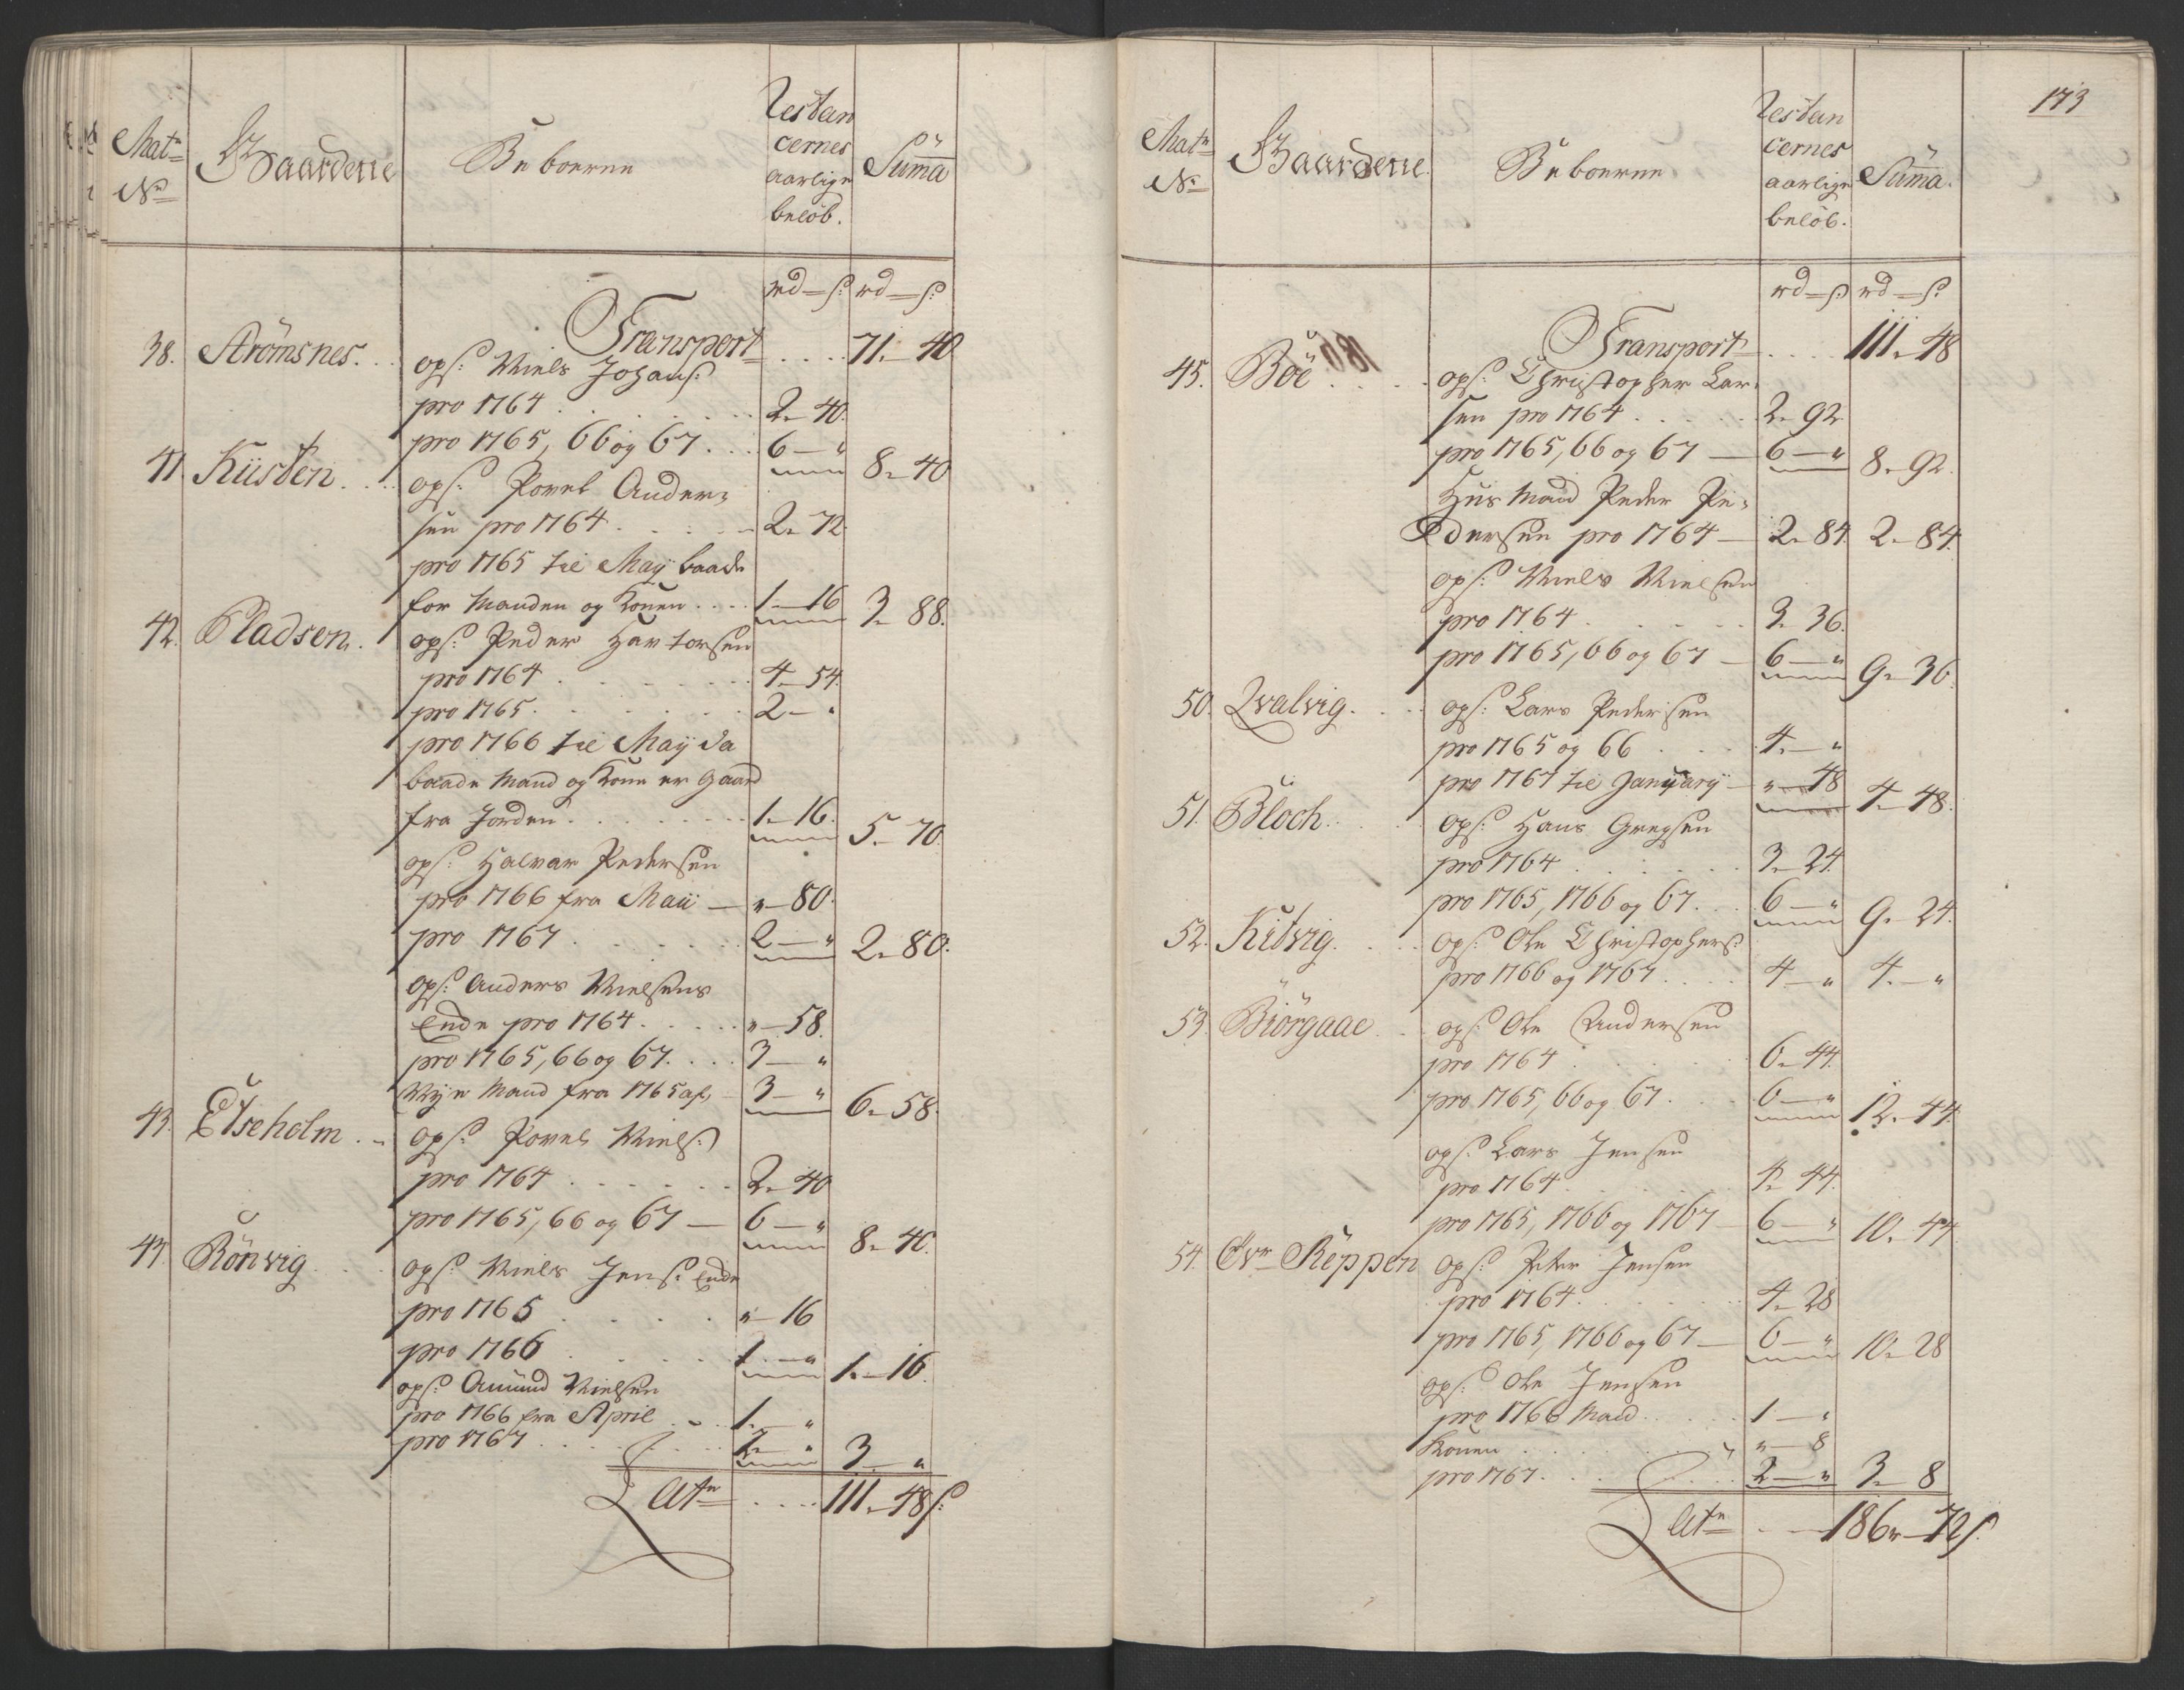 Matr No Gaardene Beboerne Restancernes aarlige belöb. Suma
rd — s: rd — s:
Transport . . . . 71. 40
38. Strömsnes. . ops: Niels Johans:
pro 1764 . . . 2. 40.
pro 1765, 66 og 67 . . . 6 — " 8. 40
41. Küsten . . . ops: Povel Ander-
sen pro 1764 . . . 2. 72
pro 1765 til May baade
for Manden og Konen . . . 1. 16 3. 88.
42. Pladsen. . ops: Peder Havtorsen
pro 1764 . . . 4. 54.
pro 1765 . . . 2 — "
pro 1766 til Maij da
baade Mand og Kone er Gaard
fra Jorden . . . 1. 16. 5. 70.
ops: Halvar Pedersen
pro 1766 fra Maii — " — 80.
pro 1767 . . . 2 — " 2. 80.
ops: Anders Nielsens
Enke pro 1764 . . . " — 58.
pro 1765, 66 og 67. . . . 3 — "
Nye Mand fra 1765 af, 3 — " 6. 58.
43. Etseholm . . ops: Povel Niels:
pro 1764 . . . 2. 40
pro 1765, 66 og 67 — 6 — " 8. 40.
44. Rönvig . . ops: Niels Jens: Enke
pro 1765 . . . " — 16
pro 1766 . . . 1. — " 1. — 16.
ops: Amund Nielsen
pro 1766 fra April . . 1. — "
pro 1767 . . . 2. — " 3 — "
Latr . . . . 111. 48 s:
173
Matr No Gaardene. Beboerne Restancernes aarlige belöb. Suma.
rd — s: rd — s:
Transport . . . 111. 48
45. Böe . . . . ops: Christopher Lar-
sen pro 1764 . . . 2. 92.
pro 1765, 66 og 67 — 6 — " 8. 92.
Huusmand Peder Pe-
dersen pro 1764 — 2. 84. 2. 84.
ops: Niels Nielsen
pro 1764 . . . 3. 36.
pro 1765, 66 og 67 — 6 — " 9. 36
50. Qvalvig. . . ops: Lars Pedersen
pro 1765 og 66 . . . 4. — "
pro 1767 til Januarij — " — 48 4. 48.
51. Bloch. . . . ops: Hans Gregsen
pro 1764 . . . 3. 24.
pro 1765, 1766 og 67. . . 6 — " 9. 24.
52. Kilvig. . . . ops: Ole Christophers:
pro 1766 og 1767 . . . . 4 — " 4. — "
53. Biörgaae . . ops: Ole Andersen
pro 1764 . . . 6. 44.
pro 1765, 66 og 67 . . . 6 — " 12. 44.
ops: Lars Jensen
pro 1764 . . . 4. 44.
pro 1765, 1766 og 1767 — 6 — " 10. 44
54. Reppen ops: Peter Jensen
pro 1764 . . . 4. 28
pro 1765, 1766 og 67 — 6 — " 10. 28
ops: Ole Jensen
pro 1766 Mand . . . 1 — "
Konen . . . " — 8
pro 1767 . . . 2 — " 3. 8
Latr . . — 186 — 72 s.